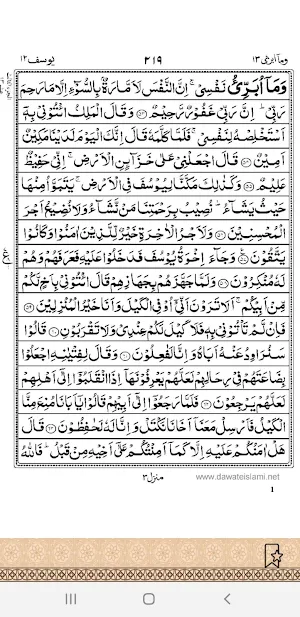 وما ابرئ ١٣ ٢١٩ یوسف ١٢
وَمَاۤ اُبَرِّئُ نَفْسِیْ ۚ اِنَّ النَّفْسَ لَاَمَّارَةٌۢ بِالسُّوْٓءِ اِلَّا مَا رَحِمَ
رَبِّیْ ؕ اِنَّ رَبِّیْ غَفُوْرٌ رَّحِیْمٌ ﴿۵۳﴾ وَقَالَ الْمَلِكُ ائْتُوْنِیْ بِهٖۤ
اَسْتَخْلِصْهُ لِنَفْسِیْ ۚ فَلَمَّا كَلَّمَهٗ قَالَ اِنَّكَ الْیَوْمَ لَدَیْنَا مَكِیْنٌ
اَمِیْنٌ ﴿۵۴﴾ قَالَ اجْعَلْنِیْ عَلٰی خَزَآىِٕنِ الْاَرْضِ ۚ اِنِّیْ حَفِیْظٌ
عَلِیْمٌ ﴿۵۵﴾ وَكَذٰلِكَ مَكَّنَّا لِیُوْسُفَ فِی الْاَرْضِ ۚ یَتَبَوَّاُ مِنْهَا
حَیْثُ یَشَآءُ ؕ نُصِیْبُ بِرَحْمَتِنَا مَنْ نَّشَآءُ وَلَا نُضِیْعُ اَجْرَ
الْمُحْسِنِیْنَ ﴿۵۶﴾ وَلَاَجْرُ الْاٰخِرَةِ خَیْرٌ لِّلَّذِیْنَ اٰمَنُوْا وَكَانُوْا
یَتَّقُوْنَ ﴿۵۷﴾ وَجَآءَ اِخْوَةُ یُوْسُفَ فَدَخَلُوْا عَلَیْهِ فَعَرَفَهُمْ وَهُمْ
لَهٗ مُنْكِرُوْنَ ﴿۵۸﴾ وَلَمَّا جَهَّزَهُمْ بِجَهَازِهِمْ قَالَ ائْتُوْنِیْ بِاَخٍ لَّكُمْ
مِّنْ اَبِیْكُمْ ۚ اَلَا تَرَوْنَ اَنِّیْۤ اُوْفِی الْكَیْلَ وَاَنَا خَیْرُ الْمُنْزِلِیْنَ ﴿۵۹﴾
فَاِنْ لَّمْ تَاْتُوْنِیْ بِهٖ فَلَا كَیْلَ لَكُمْ عِنْدِیْ وَلَا تَقْرَبُوْنِ ﴿۶۰﴾ قَالُوْا
سَنُرَاوِدُ عَنْهُ اَبَاهُ وَاِنَّا لَفٰعِلُوْنَ ﴿۶۱﴾ وَقَالَ لِفِتْیٰنِهِ اجْعَلُوْا
بِضَاعَتَهُمْ فِیْ رِحَالِهِمْ لَعَلَّهُمْ یَعْرِفُوْنَهَاۤ اِذَا انْقَلَبُوْۤا اِلٰۤی اَهْلِهِمْ
لَعَلَّهُمْ یَرْجِعُوْنَ ﴿۶۲﴾ فَلَمَّا رَجَعُوْۤا اِلٰۤی اَبِیْهِمْ قَالُوْا یٰۤاَبَانَا مُنِعَ مِنَّا
الْكَیْلُ فَاَرْسِلْ مَعَنَاۤ اَخَانَا نَكْتَلْ وَاِنَّا لَهٗ لَحٰفِظُوْنَ ﴿۶۳﴾ قَالَ
هَلْ اٰمَنُكُمْ عَلَیْهِ اِلَّا كَمَاۤ اَمِنْتُكُمْ عَلٰۤی اَخِیْهِ مِنْ قَبْلُ ؕ فَاللّٰهُ
منزل ۳ www.dawateislami.net
1